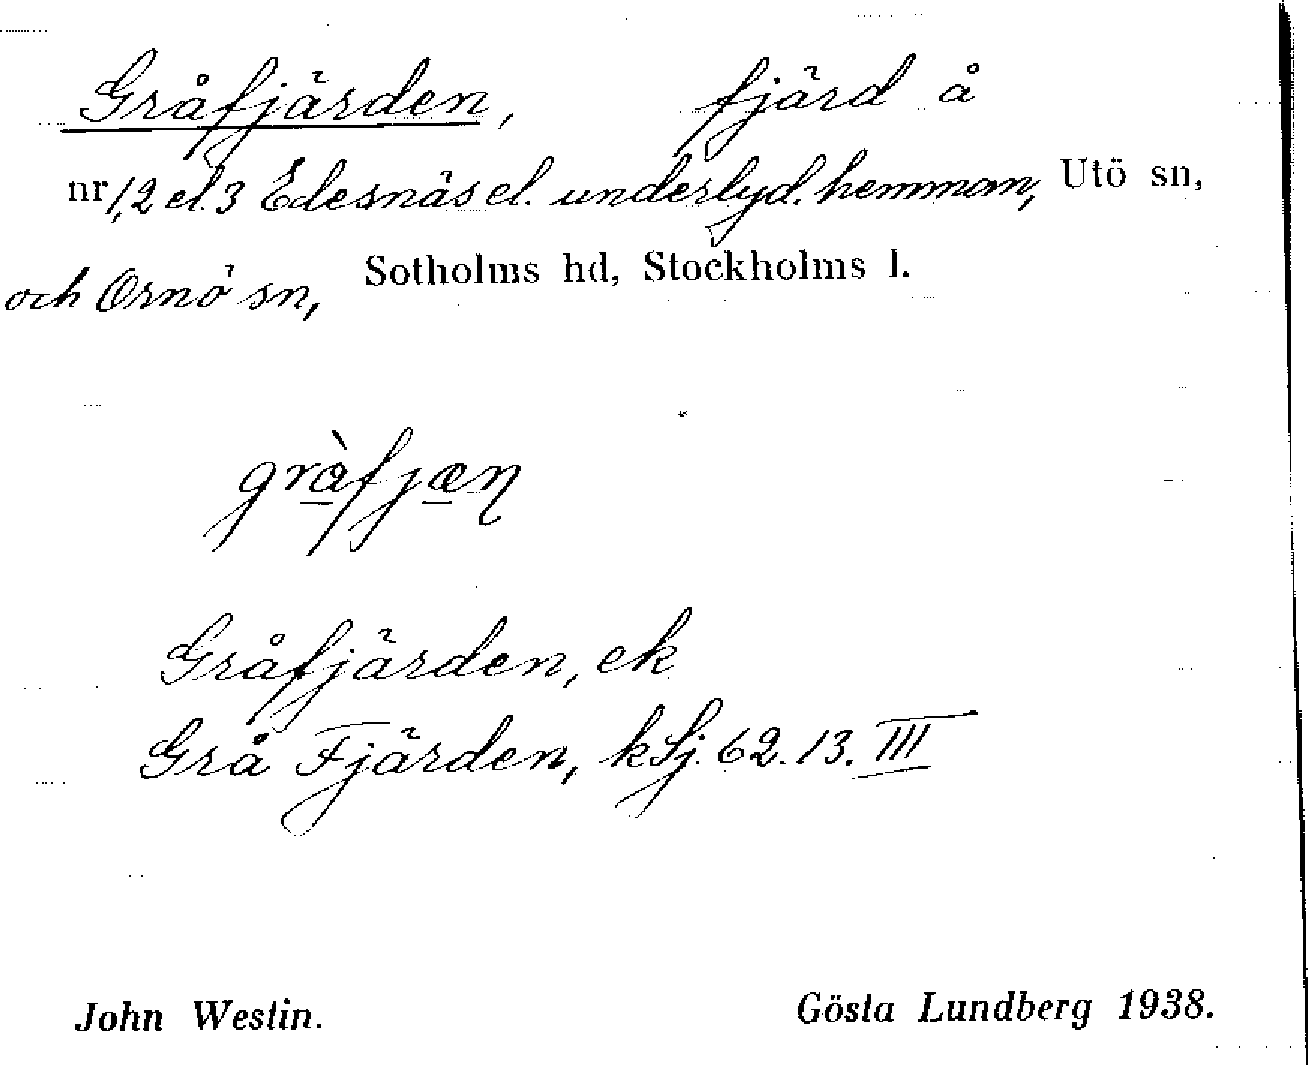 Gråfjärden, fjärd å
nr 1,2 el. 3 Edesnäs el. underlyd. hemman, Utö sn,
och Ornö sn, Sotholms hd, Stockholms l.
grå̀fjæn
Gråfjärden, ek
Grå Fjärden, kSj. 62.13.III
John Westin. Gösta Lundberg 1938.